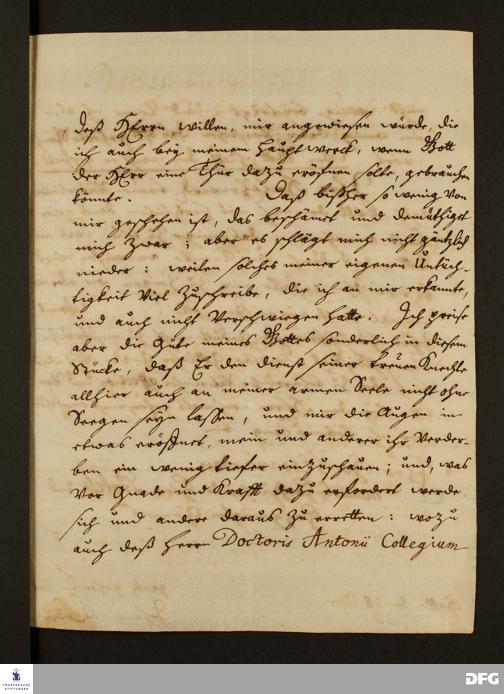 deß HErrn willen, mir angewiesen würde, die
ich auch bey meinem Hauptwerck, wenn Gott
der HErr eine Thür dazu eröfnen solte, gebrauchen
könte. Daß bißher so wenig von
mir geschehen ist, das beschämet und demüthiget
mich zwar; aber es schlägt mich nicht gäntzlich
nieder: weilen solches meiner eigenen Untüch-
tigkeit viel zuschreibe, die ich an mir erkannte,
und auch nicht verschwiegen hatte. Ich preise
aber die Güte meines Gottes sonderlich in diesem
Stücke, daß Er den dienst seiner treuen Knechte
allhier auch an meiner armen Seele nicht ohne
Seegen seyn lassen, und mir die Augen in
etwas eröffnet, mein und anderer ihr Verder-
ben ein wenig tiefer einzuschauen; und, was
vor Gnade und Krafft dazu erfordert werde,
sich und andere daraus zu erretten: wozu
auch deß Herrn Doctoris Antonii Collegium
FRANCKESCHE
STIFTUNGEN
DFG